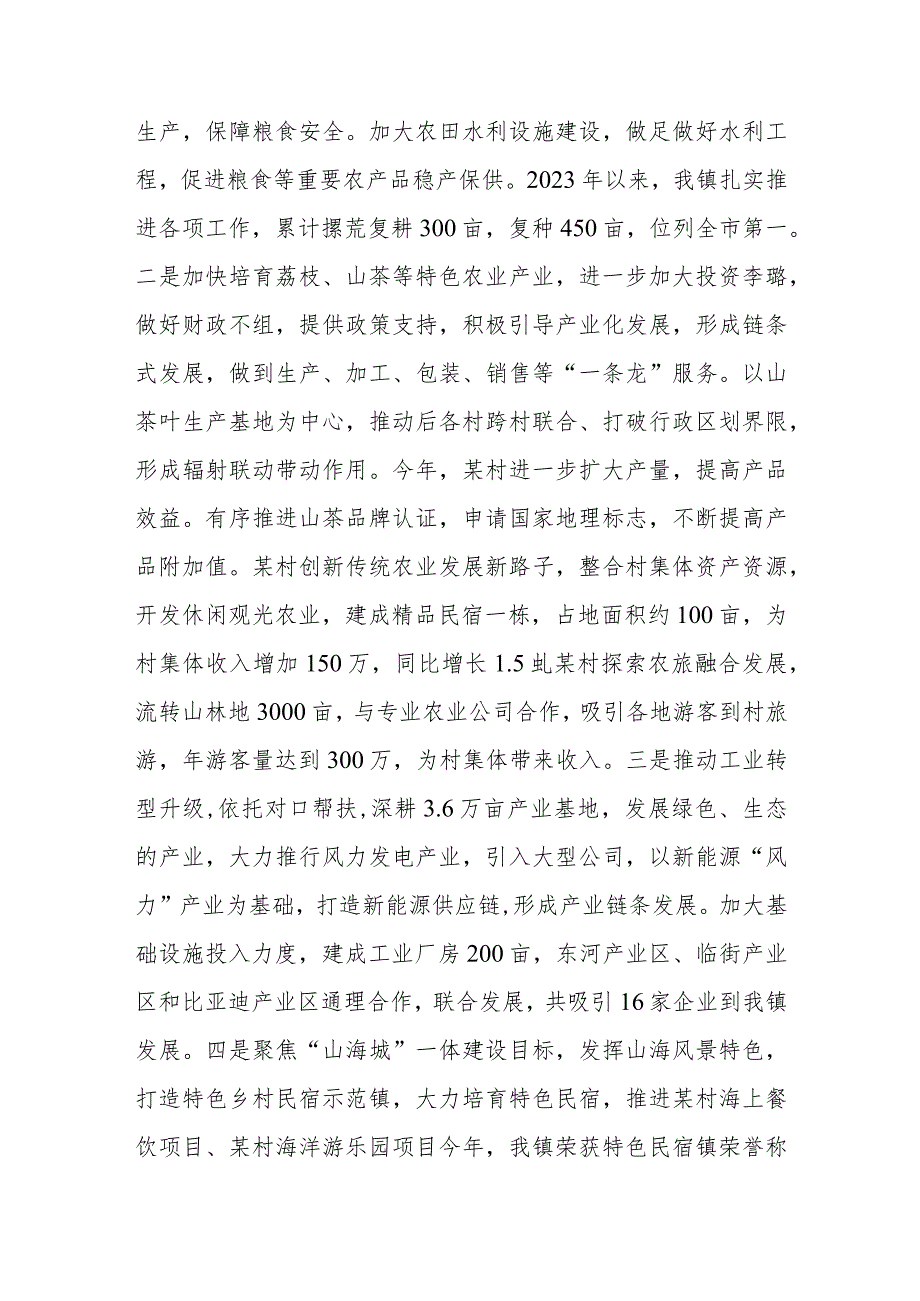 生产，保障粮食安全。加大农田水利设施建设，做足做好水利工
程，促进粮食等重要农产品稳产保供。2023 年以来，我镇扎实推
进各项工作，累计摞荒复耕 300 亩，复种 450 亩，位列全市第一。
二是加快培育荔枝、山茶等特色农业产业，进一步加大投资李璐，
做好财政不组，提供政策支持，积极引导产业化发展，形成链条
式发展，做到生产、加工、包装、销售等“一条龙”服务。以山
茶叶生产基地为中心，推动后各村跨村联合、打破行政区划界限，
形成辐射联动带动作用。今年，某村进一步扩大产量，提高产品
效益。有序推进山茶品牌认证，申请国家地理标志，不断提高产
品附加值。某村创新传统农业发展新路子，整合村集体资产资源，
开发休闲观光农业，建成精品民宿一栋，占地面积约 100 亩，为
村集体收入增加 150 万，同比增长 1.5 虬某村探索农旅融合发展，
流转山林地 3000 亩，与专业农业公司合作，吸引各地游客到村旅
游，年游客量达到 300 万，为村集体带来收入。三是推动工业转
型升级,依托对口帮扶,深耕 3.6 万亩产业基地，发展绿色、生态
的产业，大力推行风力发电产业，引入大型公司，以新能源“风
力”产业为基础，打造新能源供应链,形成产业链条发展。加大基
础设施投入力度，建成工业厂房 200 亩，东河产业区、临街产业
区和比亚迪产业区通理合作，联合发展，共吸引 16 家企业到我镇
发展。四是聚焦“山海城”一体建设目标，发挥山海风景特色，
打造特色乡村民宿示范镇，大力培育特色民宿，推进某村海上餐
饮项目、某村海洋游乐园项目今年，我镇荣获特色民宿镇荣誉称